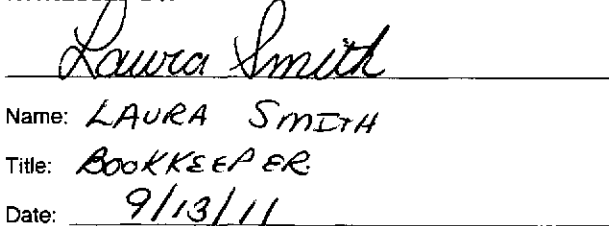 Laura Smith
Name: LAURA SMITH
Title: BOOKKEEPER
Date: 9/13/11